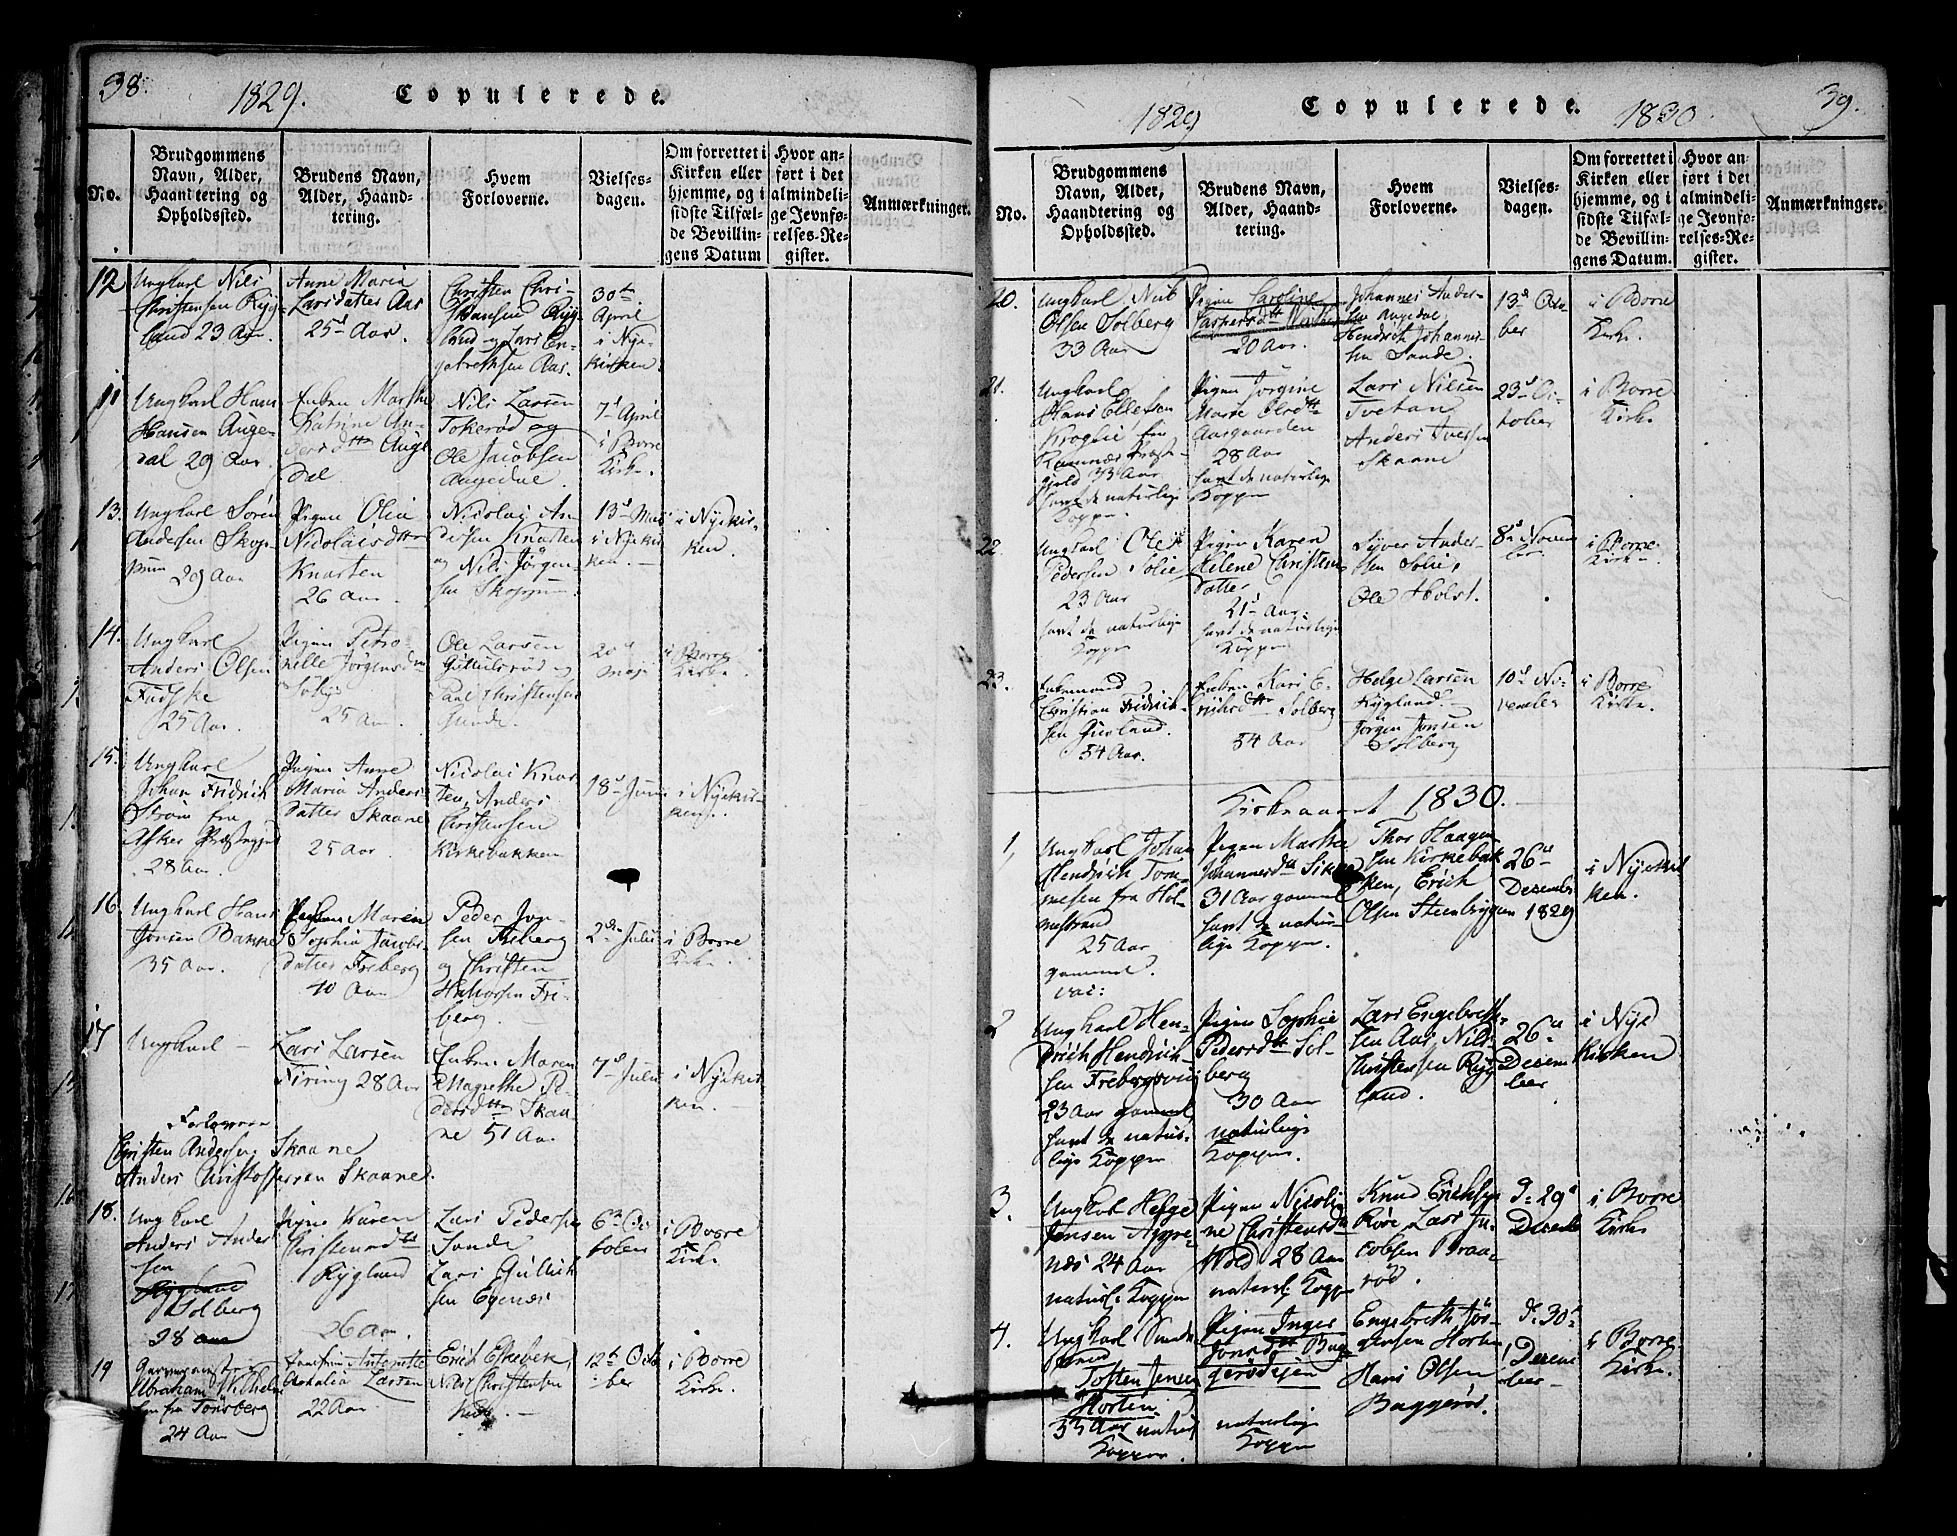 38.
1829.
Copulerede.
No.
Brudgommens
Navn, Alder,
Haandtering og
Opholdssted.
Brudens Navn,
Alder, Haand-
tering.
Hvem
Forloverne.
Vielses-
dagen.
Om forrettet i
Kirken eller
hjemme, og i
sidste Tilfæl-
de Bevillin-
gens Datum
Hvor an-
ført i det
almindeli-
ge Jevnfø-
relses-Re-
gister.
Anmærkninger.
12
Ungkarl Nils
Christensen Ryg-
land 23 Aar.
Anne Maria
Larsdatter Aas
25 Aar.
Christen Chri-
stansen Ryg-
land og Lars En-
gebrethsen Aas.
30te
April
i Nye-
kirken.
11
Ungkarl Hans
Hansen Auge-
dal 29 Aar.
Enken Marthe
Katrine An-
dersdttr Auge
dal
Nils Larsen
Tokerød og
Ole Jacobsen
Augedal.
7d April
i Borre
Kirke.
13.
Ungkarl Søren
Andersen Skop-
pum
29 Aar
Pigen Olia
Nicolaisdttr
Knarten
26 Aar.
Nicolai An
dersen Knarten
og Nils Jørgen-
sen Skoppum.
13d Mai
i Nyekir
ken.
i Nyekir-
ken.
14.
Ungkarl
Anders Olsen
Fudske
25 Aar.
Pigen Petro
nelle Jørgensd
25 Aar.
Ole Larsen
og
Paul Christensen
Sande.
20d
Maji
i Borre
Kirke.
15.
Ungkarl
Johan Fridrich
Strøm fra
Asker Præstegjeld
28 Aar.
Pigen Anne
Maria Anders
datter Skaane
25 Aar.
Nicolai Knar
ten, Anders
Christensen
Kirkebakken
18d Juni
i Nyekir-
ken.
16.
Ungkarl Hans
Jonsen Bakke
35 Aar.
Maren
Sophia Jacobs
datter Freberg
40 Aar
Peder Jon-
sen Freberg
og Christen
Halvorsen Fre-
berg.
2den Julii
i Borre
Kirke.
17
Ungkarl
Lars Larsen
28 Aar
Enken Maren
Magrethe Pe-
dersdttr Skaa-
ne 51 Aar.
7d Julii
i Nyekir
ken.
Forlovere
Christen Andersen Skaane
Anders Christoffersen Skaane.
18.
Ungkarl
Anders Anders
sen
Rygland
Solberg
28 Aar
Pigen Karen
Christensdtt
Rygland
26 Aar.
Lars Pedersen
Sande
Lars Gullich
sen Egenæs
6te Oc
tober
i Borre
Kirke
19
Abraham Wilhelm
sen fra Tønsberg
24 Aar
Antonette
Larsen
22 Aar.
Erich Eskebek,
Nils Christensen
12te Octo
ber
i Borre
Kirke.
1829
Copulerede.
1830.
39.
No.
Brudgommens
Navn, Alder,
Haandtering og
Opholdssted.
Brudens Navn,
Alder, Haand-
tering.
Hvem
Forloverne.
Vielses-
dagen.
Om forrettet i
Kirken eller
hjemme, og i
sidste Tilfæl-
de Bevillin-
gens Datum.
Hvor an-
ført i det
almindeli-
ge Jevnfø-
relses-Re-
gister.
Anmærkninger.
20.
Ungkarl Niels
Olsen Solberg
33 Aar
Pigen Caroline
Caspersdtt
20 Aar.
Johannes Ander-
sen Augedal,
Hendrich Johannes-
sen Sande.
13d Octo
ber
i Borre
Kirke.
21.
Ungkarl
Hans Ellefsen
Kroglie fra
Ramnæs Præste-
gjeld 33 Aar
havt de naturlige
Kopper.
Pigen Jørgine
Marie Olsdtt
Aasgaarden
28 Aar
havt de naturlige
Kopper
Lars Nilsen
Tvetan
Anders Iversen
Skaane
23d Oc-
tober
i Borre
Kirke
22
Ungkarl Ole
Pedersen Solie
23 Aar
havt de naturlige
Kopper
Pigen Karen
Helene Christens
datter
21 Aar.
havt de naturlige
Kopper
Syver Ander-
sen Solie,
Ole Holst.
8d Novem
ber
i Borre
Kirke.
23.
Enkemand
Christian Fridrich-
sen
54 Aar.
Enken Kari E-
richsdtt Solberg
54 Aar
Helge Larsen
Rygland.
Jørgen Jonsen
Solberg
10d No-
vember
i Borre
Kirke.
Kirkeaaret 1830.
1,
Ungkarl Johan
Hendrich Tom-
mesen fra Hol-
mestrand
25 Aar
gammel.
vac:
Pigen Marthe
Johannesdtt
31 Aar gammel
havt de natur-
lige Kopper.
Thor Haagen
sen Kirkebak
ken, Erich
Olsen Steenbryggen
26de
Decembr
1829
i Nyekir
ken.
2
Ungkarl Hen-
drich Hendrich-
sen Frebergsvig
23 Aar gammel
havt de natur-
lige Kopper
Pigen Sophie
Pedersdtt Sol-
berg
30 Aar
naturlige
Kopper.
Lars Engebreth-
sen Aas, Nils
Christensen Ryg
land.
26de
Decem
ber
i Nye
Kirken
3.
Ungkarl Helge
Jensen Appe-
næs 24 Aar
naturl: Kopper
Pigen Nicoli
ne Christensdtt
Wold 28 Aar
naturl: Kopper
Knud Erichsen
Røre Lars Ja-
cobsen Braa-
rød.
d. 29d
Decemb
i Borre
Kirke
4.
Ungkarl
Tosten Jensen
Horten
33 Aar naturl
Kopper.
Pigen Inger
Jonsdtt Bag
gerødejen
naturlige
Kopper
Engebreth Jør-
gensen Horten
Hans Olsen
Baggerød.
d. 30d
Decem
ber
i Borre
Kirke.